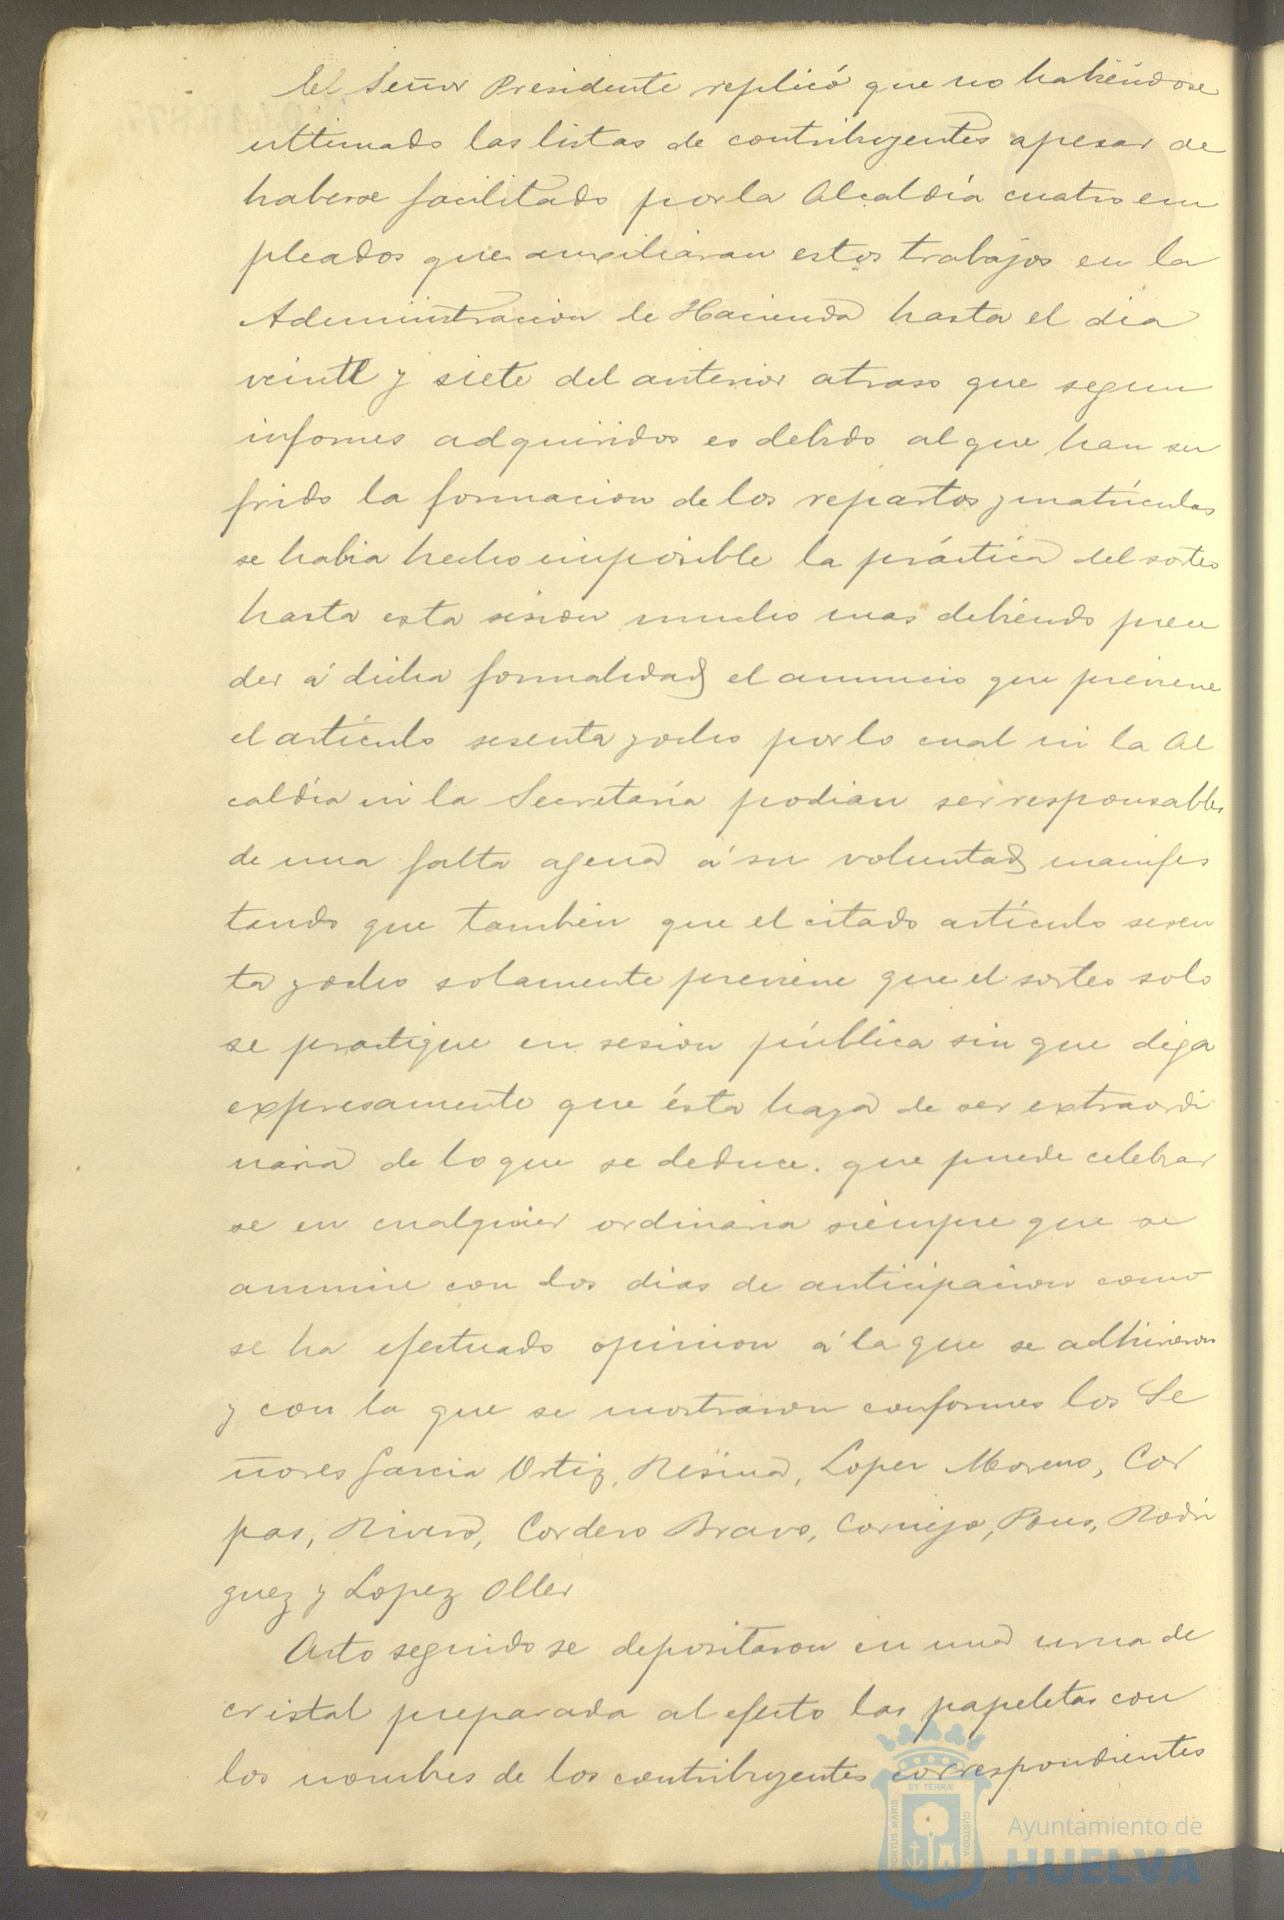 El Señor Presidente replicó que no habiéndose
ultimado las listas de contribuyentes apesar de
haberse facilitado por la Alcaldía cuatro em
pleados que auxiliaran estos trabajos en la
Administracion de Hacienda hasta el dia
veinte y siete del anterior atraso que segun
informes adquiridos es debido al que han su
frido la formacion de los repartos y matrículas
se habia hecho imposible la práctica del sorteo
hasta esta sesion mucho mas debiendo prece
der á dicha formalidad el anuncio que previene
el artículo sesenta y ocho por lo cual ni la Al
caldía ni la Secretaría podian ser responsables
de una falta agena á su voluntad manifes
tando que tambien que el citado artículo sesen
ta y ocho solamente previene que el sorteo solo
se practique en sesion pública sin que diga
expresamente que ésta haya de ser extraordi
naria de lo que se deduce que puede celebrar
se en cualquier ordinaria siempre que se
anuncie con dos dias de anticipacion como
se ha efectuado opinion á la que se adhirieron
y con la que se mostraron conformes los Se
ñores Garcia Ortiz, Resina, Lopez Moreno, Cor
pas, Rivero, Cordero Bravo, Cornejo, Pons, Rodri
guez y Lopez Oller
Acto seguido se depositaron en una urna de
cristal preparada al efecto las papeletas con
los nombres de los contribuyentes correspondientes
ET TERRÆ
PORTUS MARIS
CUSTODIA
Ayuntamiento de
HUELVA